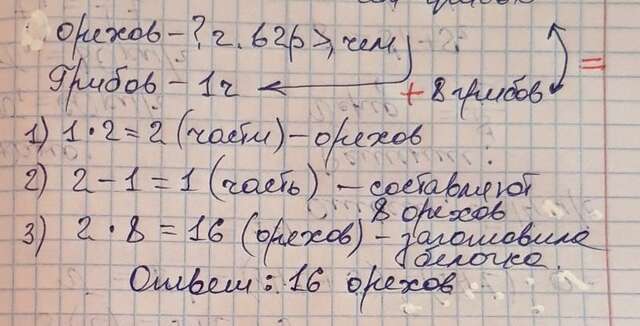 Орехов - ? ч. в 2 р >, чем
Грибов - 1 ч + 8 грибов =
1) 1 · 2 = 2 (части) - орехов
2) 2 - 1 = 1 (часть) - составляют
8 орехов
3) 2 · 8 = 16 (орехов) - заготовила
белочка.
Ответ: 16 орехов